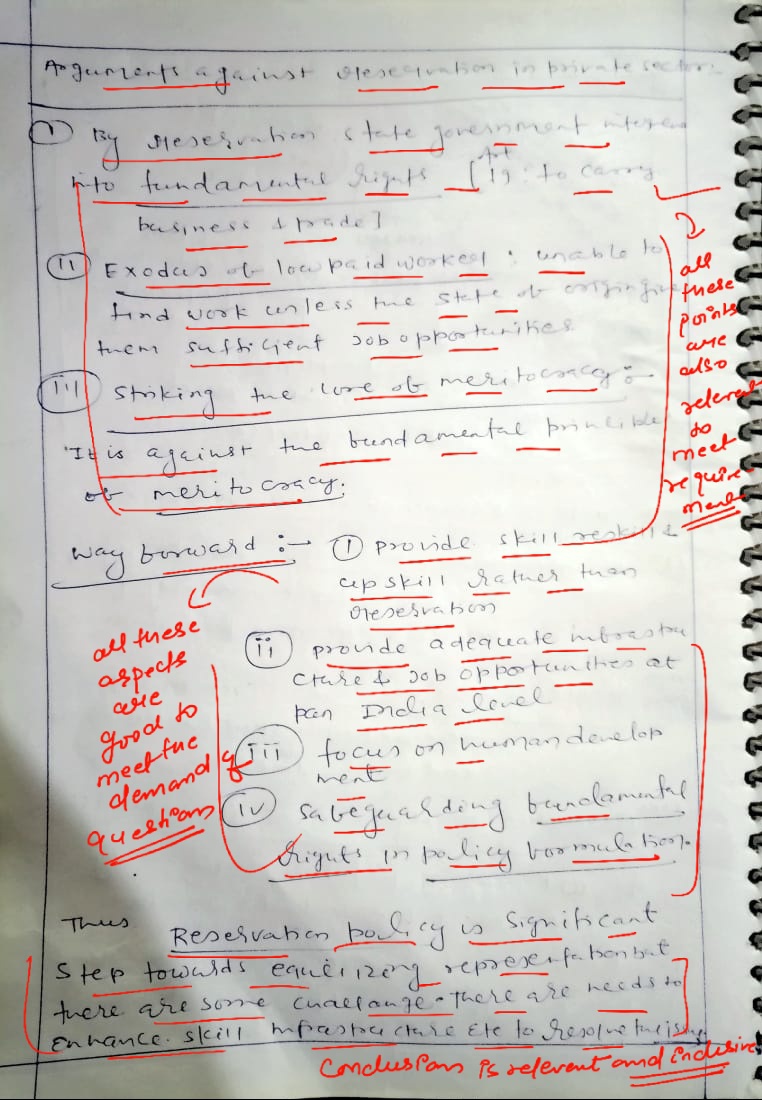 Arguments against reservation in private sector:
(i) By reservation state government interven
into fundamental rights [Art 19: to carry
business & trade]
(ii) Exodus of low paid worked : unable to
find work unless the state of origin give
them sufficient Job opportunities
(iii) Striking the core of meritocracy :-
"It is against the fundamental principle
of meritocracy.
all
these
points
are
also
relevant
to
meet
require
ments
way forward :- (i) provide skill reskill &
upskill rather than
reservation
(ii) provide adequate infrastru
cture & Job opportunities at
pan India level
(iii) focus on human develop
ment
(iv) safeguarding fundamental
rights in policy formulation.
all these
aspects
are
good to
meet the
demand of
questions
Thus Reservation policy is significant
step towards equilizing representation but
there are some challange. There are needs to
enhance skill infrastructure etc to resolve the issue
Conclusion is relevant and inclusive